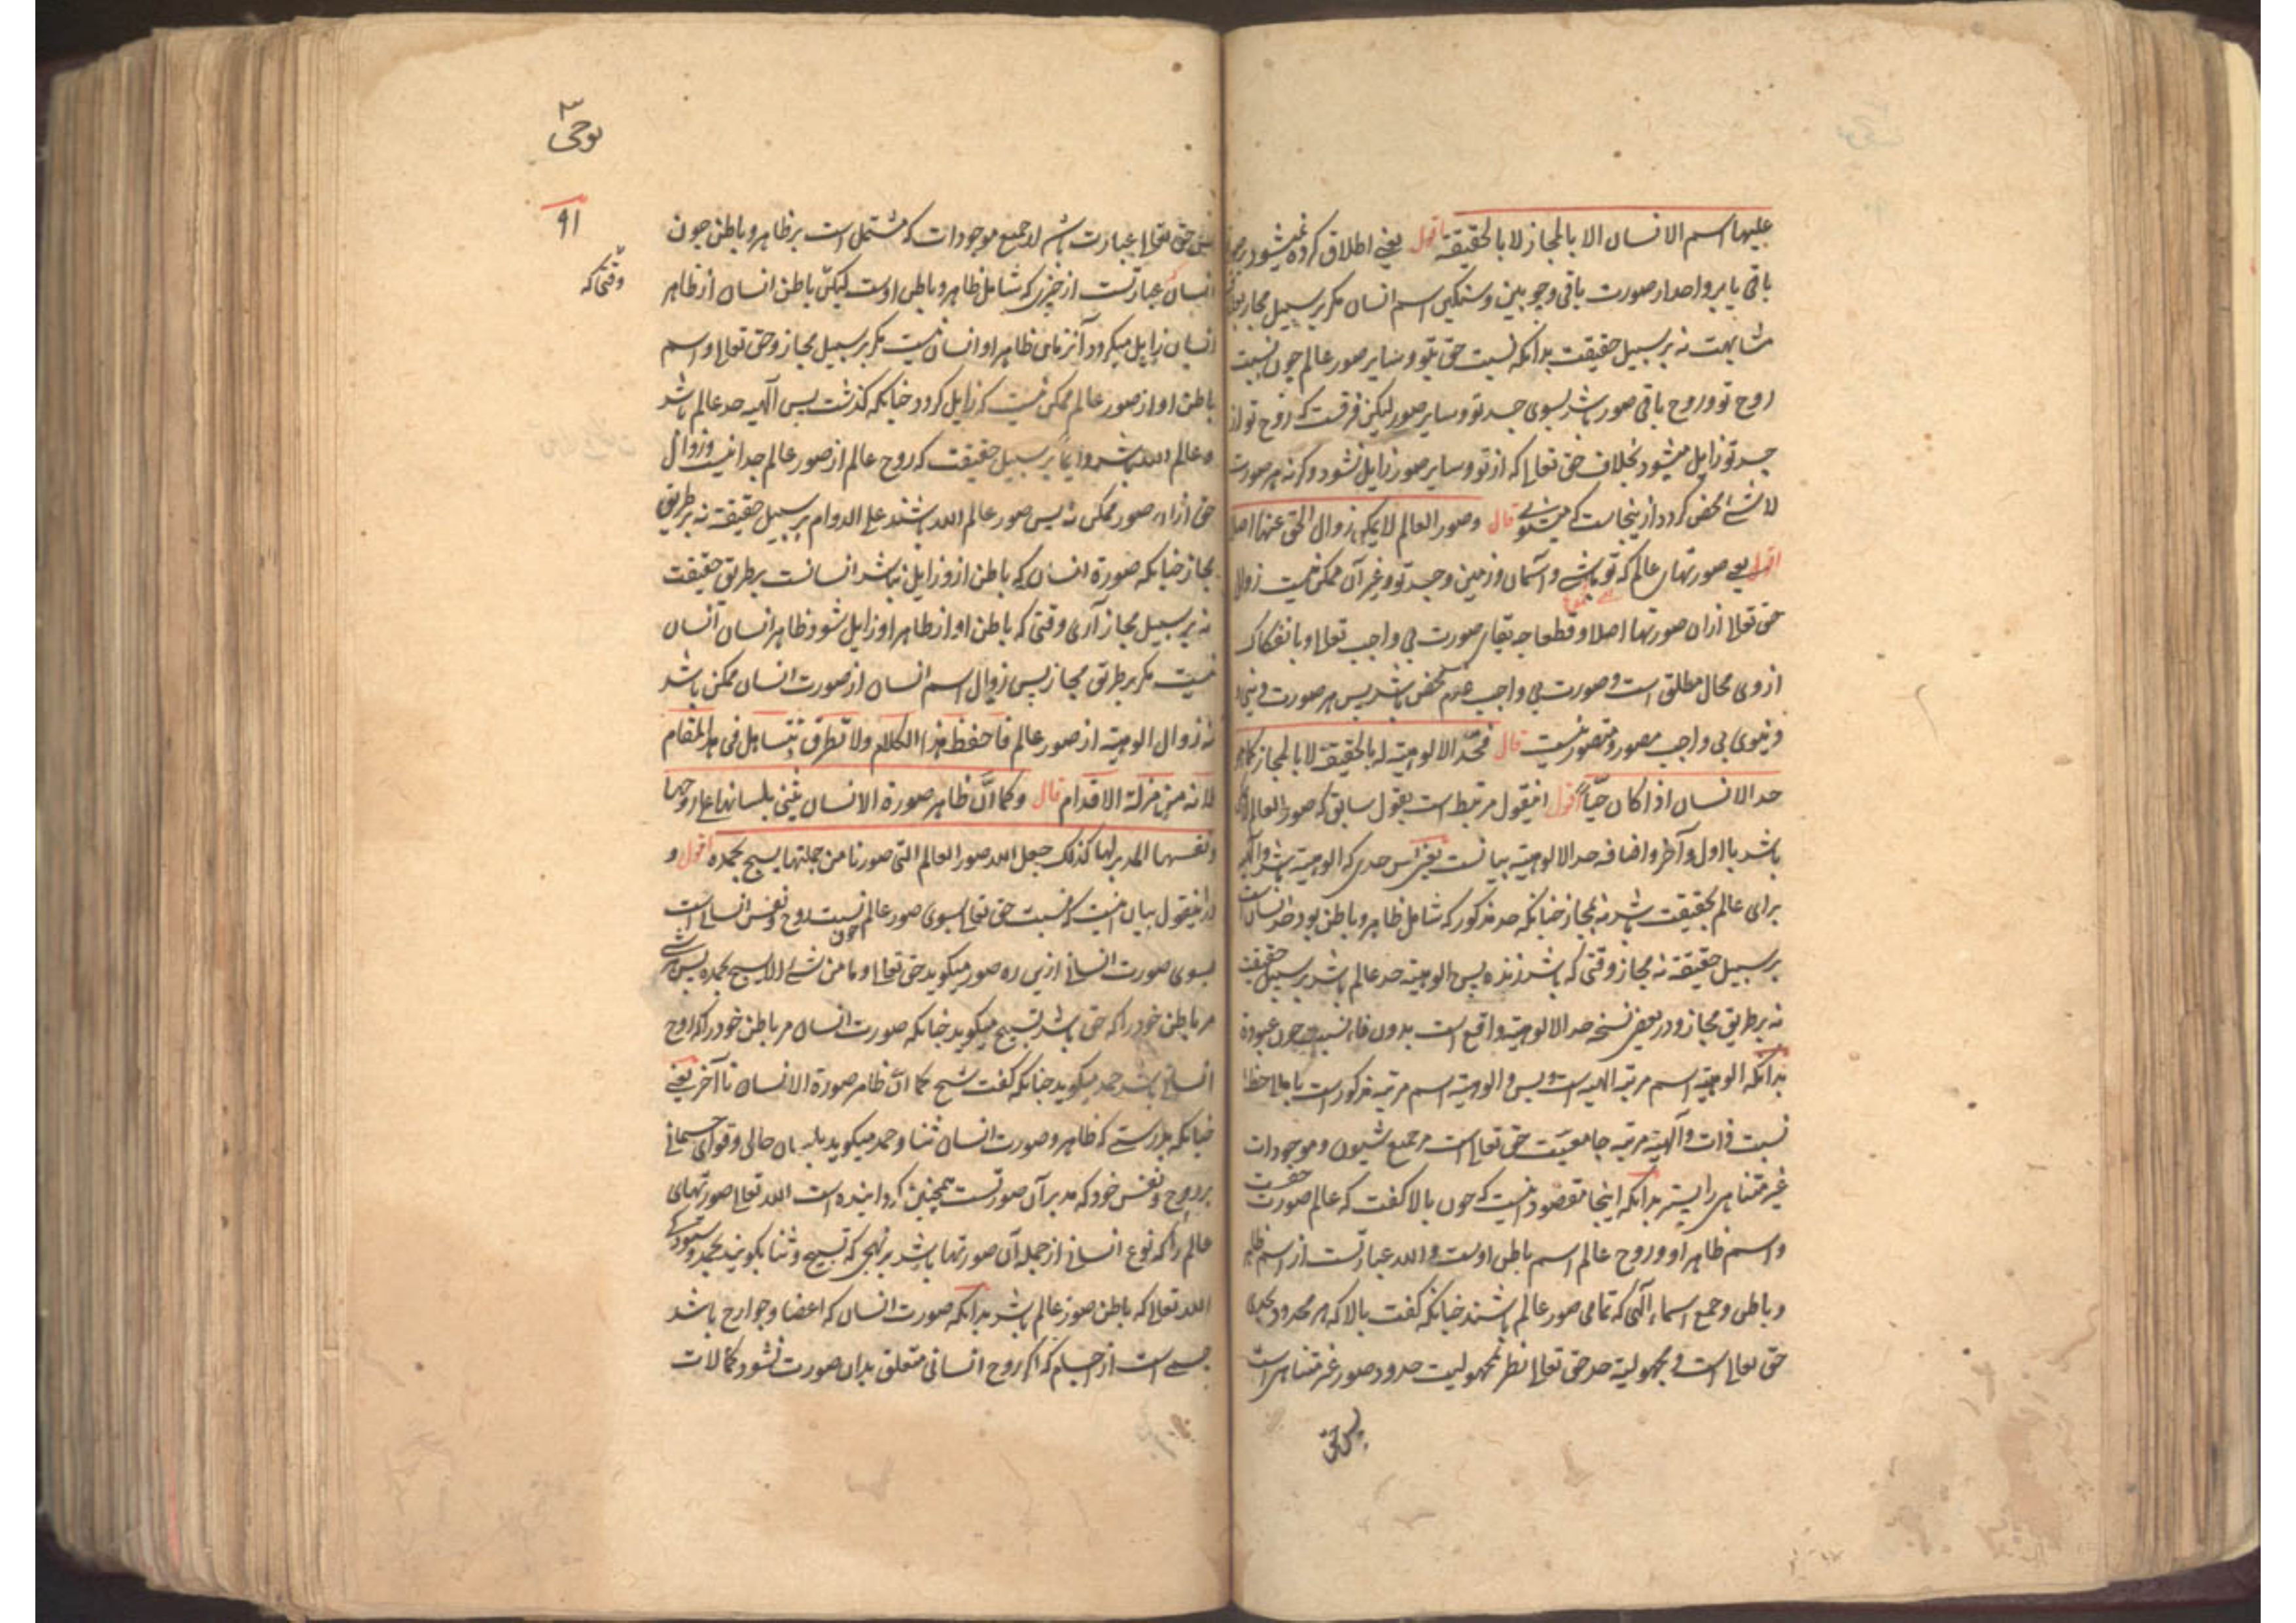 علیها اسم الانسان الا بالمجاز لا بالحقیقة اقول یعنی اطلاق کرده نمیشود بر صورت
باقی یا بر واحد از صورت باقی وجوبین و سنگین اسم انسان مکر بر سبیل مجاز
مشابهت نه بر سبیل حقیقت بدانکه نسبت حق بتو و سایر صور عالم چون نسبت
روح تو و روح باقی صور باشد بسوی جسد تو و سایر صور لیکن فرقست که روح تو از
جسد تو زایل میشود بخلاف حق تعالی که از تو و سایر صور زایل نشود و کرنه هر صورت
لا شئ محض کردد ازینجاست که قال و صور العالم لا یمکن زوال الحق عنها اصلا
اقول یعنی صورتهای عالم که تو باشی و آسمان و زمین و جسد تو و غیر آن ممکن نیست زوال
حق تعالی ازان صورتها اصلا و قطعا چه بقای صورت بی واجب تعالی و با نفکاک
از وی محال مطلق است و صورت بی واجب عدم محض باشد پس هر صورت دینی
و دنیوی بی واجب مصور و متصور نیست قال فحد الالوهیة له بالحقیقة لا بالمجاز کما هو
حد الانسان اذا کان حیا اقول اینقول مرتبط است بقول سابق که صور العالم لا یمکن
باشد بااول و آخر و اضافه حد الالوهیة بیانست یعنی پس حدی که الوهیة باشد
برای عالم بحقیقت باشد نه بمجاز چنانکه حد مذکور که شامل ظاهر و باطن بود حد انسان است
بر سبیل حقیقة نه مجاز وقتی که باشد زنده پس الوهیة حد عالم باشد بر سبیل حقیقت
نه بطریق مجاز و در بعض نسخ حد الالوهیة واقع است بدون فاء نسبت چون عبودة
بدانکه الوهیة اسم مرتبه الهیه است و بس و الوهیة اسم مرتبه مذکور است با ملاحظه
نسبت ذات و الهیة مرتبه جامعیت حق تعالی است مر جمیع شیون و موجودات
غیر متناهی را بستر بدانکه اینجا مقصود اینست که چون بالا کفت که عالم صورت حضرت
و اسم ظاهر او و روح عالم اسم باطن اوست و الله عبارتست از اسم ظاهر
و باطن و جمع اسماء الهی که تمامی صور عالم باشند چنانکه کفت بالا که هر محدود بحدی
حق تعالی است و مجهولیة حد حق تعالی نظر بمجهولیت حدود صور غیر متناهی است
پس حق
نوحی
۹۱
وقتی که
پس حق تعالی عبارت باشد از جمیع موجودات که مشتمل است بر ظاهر و باطن چون
انسان که عبارتست از چیزی که شامل ظاهر و باطن اوست لیکن باطن انسان از ظاهر
انسان زایل میکردد آنزمان ظاهر او انسان نیست مکر بر سبیل مجاز و حق تعالی و اسم
باطن او از صور عالم ممکن نیست که زایل کردد چنانکه کذشت پس الهیه حد عالم باشد
و عالم الله باشد دایما بر سبیل حقیقت که روح عالم از صور عالم جدا نیست و زوال
حق از صور ممکن نه پس صور عالم الله باشند علی الدوام بر سبیل حقیقة نه بر طریق
مجاز چنانکه صورة انسان که باطن ازو زایل نباشد انسانست بر طریق حقیقت
نه بر سبیل مجاز آری وقتی که باطن او از ظاهر او زایل شود ظاهر انسان انسان
نیست مکر بر طریق مجاز پس زوال اسم انسان از صورت انسان ممکن باشد
نه زوال الوهیة از صور عالم فاحفظ هذا الکلام ولا تطرق بتساهل فی هذا المقام
فانه من مزلة الاقدام قال و کما ان ظاهر صورة الانسان یثنی بلسانها علی روحها
و نفسها المدبر لها کذلک جعل الله صور العالم التی صورنا من جملتها یسبح بحمده اقول و
در اینقول بیان اینست که نسبت حق تعالی بسوی صور عالم چون نسبت روح و نفس انسانی است
بسوی صورت انسانی ازین ره صور میکوید حق تعالی و ما من شئ الا یسبح بحمده پس هر شئ
مر باطن خود را که حق باشد تسبیح میکوید چنانکه صورت انسان مر باطن خود را که روح
انسانی باشد حمد میکوید چنانکه کفت شیخ کما ان ظاهر صورة الانسان تا آخر یعنی
چنانکه بدرستی که ظاهر و صورت انسان ثنا و حمد میکوید بلسان حالی و قوای جسمانی
بر روح و نفس خود که مدبر آن صورتست همچنین کردانیده است الله تعالی صورتهای
عالم را که نوع انسانی از جمله آن صورتها باشد بر نهجی که تسبیح و ثنا بکویند بحمد
الله تعالی که باطن صور عالم باشد بدانکه صورت انسان که اعضا و جوارح باشد
جسمی است از اجسام که اکر روح انسانی متعلق بدان صورت نشود کمالات